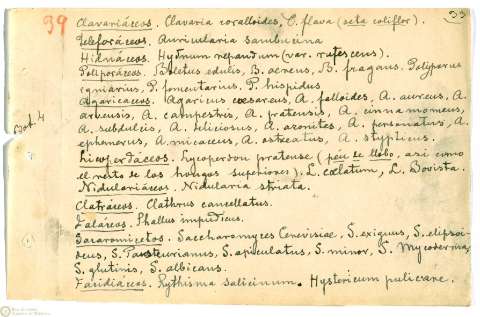 39
33
Clavariáceos. Clavaria coralloides, C. flava (seta coliflor).
Teleforáceos. Auricularia sambucina
Hidnáceos. Hydnum repandum (var. rufescens).
Poliporáceos. Boletus edulis, B. aereus, B. fragans. Polyporus
igniarius, P. fomentarius, P. hispidus
Agaricaceos. Agaricus cæsareus, A. falloides, A. aureus, A.
arvensis, A. campestris, A. pratensis, A. cinnamomeus,
A. subdulcis, A. deliciosus, A. azonites, A. personatus, A.
ephemerus, A. micaceus, A. ostreatus, A. stypticus.
Licoperdaceos. Lycoperdon pratense (peu de llobo, así como
el resto de los hongos superiores). L. cœlatum, L. Bovista.
Nidulariáceos. Nidularia striata.
Clatráceos. Clathrus cancellatus.
Faláceos. Phallus impudicus.
Sacaromicetos. Saccharomyces Cerevisiae, S. exiguus, S. elipsoi-
deus, S. Pasteurianus, S. apiculatus, S. minor, S. Mycoderma,
S. glutinis, S. albicans.
Facidiáceos. Rythisma salicinum. Hystericum pulicare.